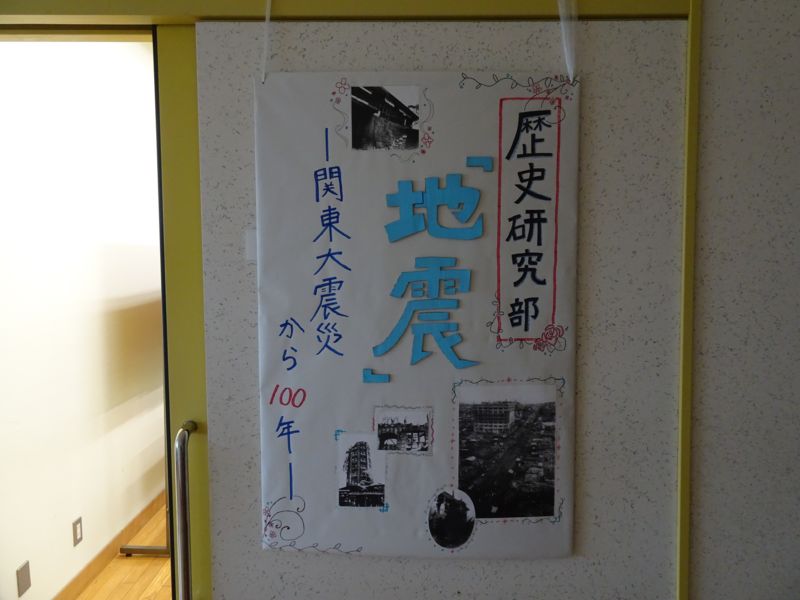 歴史研究部
「地震」
―関東大震災
から100年―